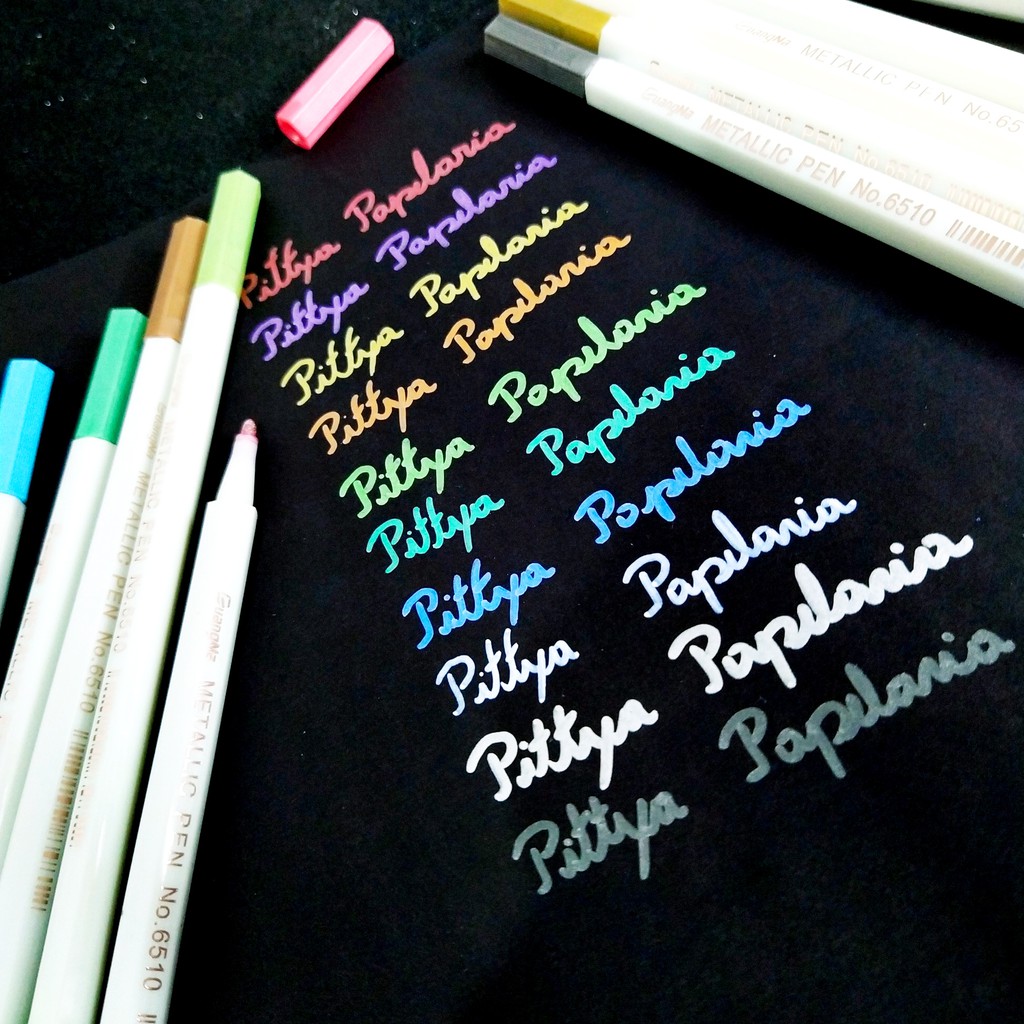 GuangNa METALLIC PEN No.65
METALLIC PEN No.6510
GuangNa METALLIC PEN No.6510
Pittya Papelaria
Pittya Papelaria
Pittya Papelaria
Pittya Papelaria
Pittya Papelaria
Pittya Papelaria
Pittya Papelaria
Pittya Papelaria
Pittya Papelaria
Pittya Papelaria
METALLIC PEN No.6510
METALLIC PEN No.6510
GuangNa METALLIC PEN No.6510